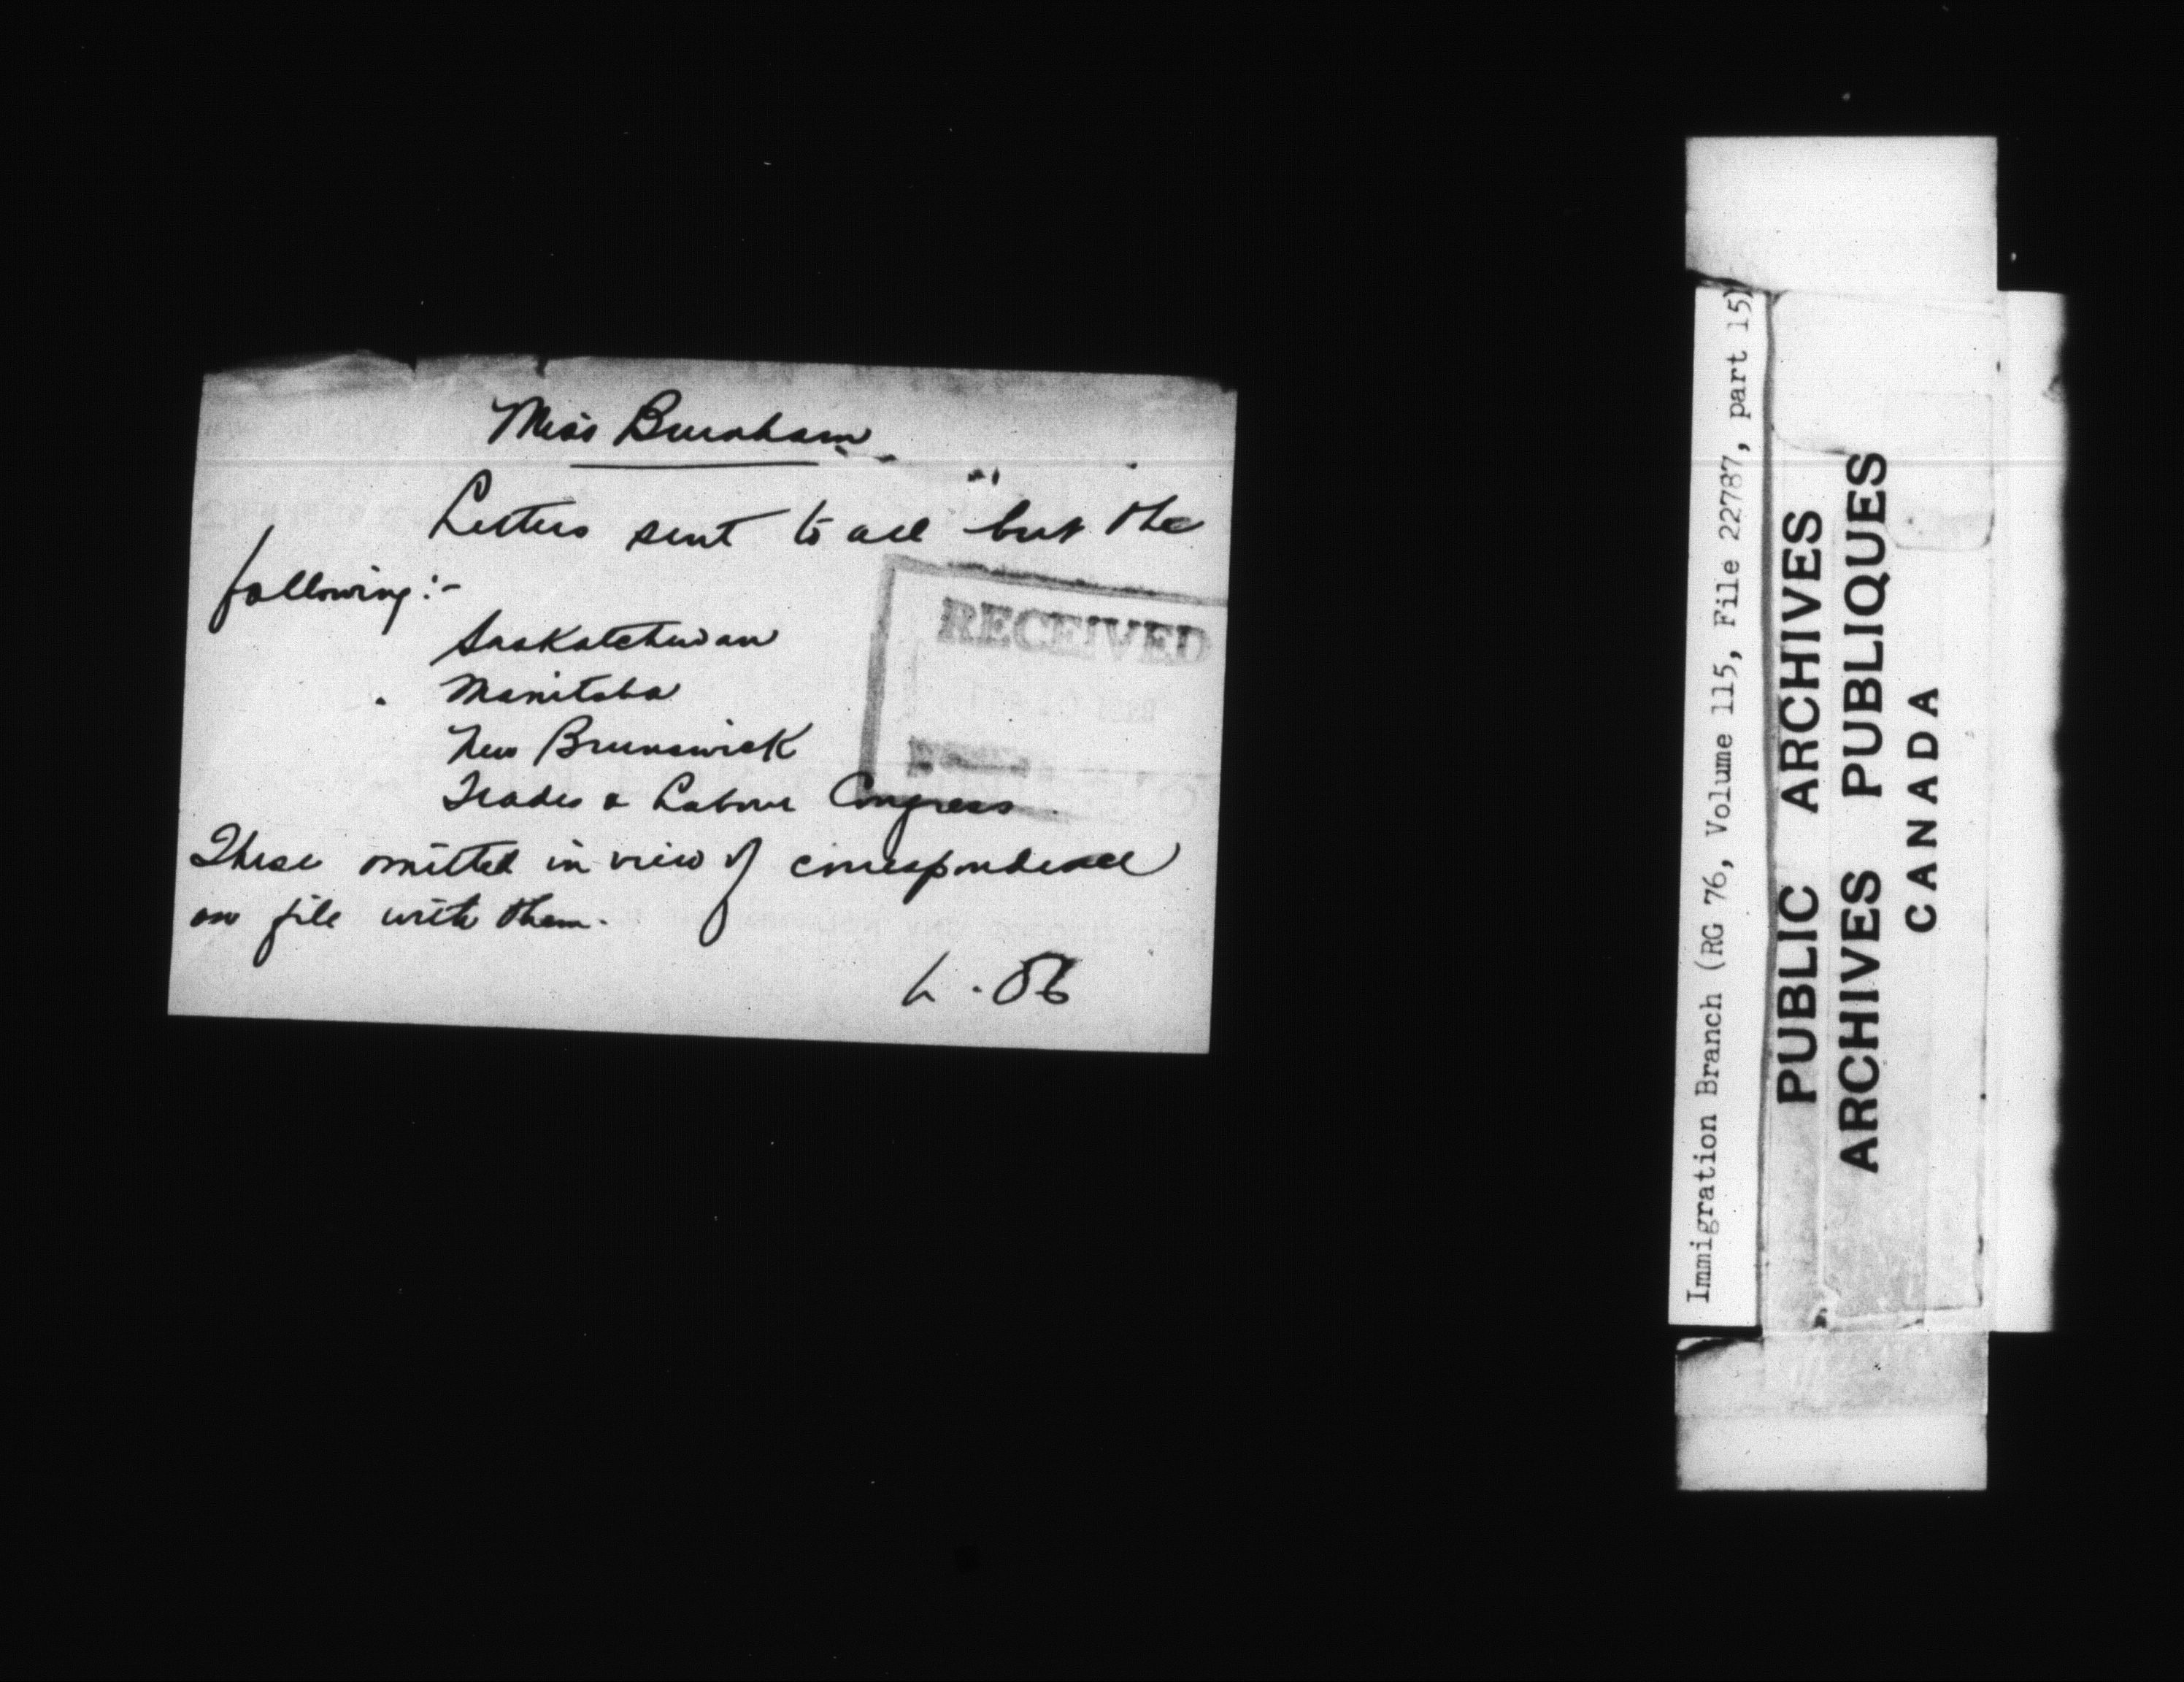 Miss Burnham
Letters sent to all but the
following:-
Saskatchewan
Manitoba
New Brunswick
Trades & Labour Congress
These omitted in view of correspondence
on file with them.
RECEIVED
Immigration Branch (RG 76, Volume 115, File 22787, part 15)
PUBLIC ARCHIVES
ARCHIVES PUBLIQUES
CANADA